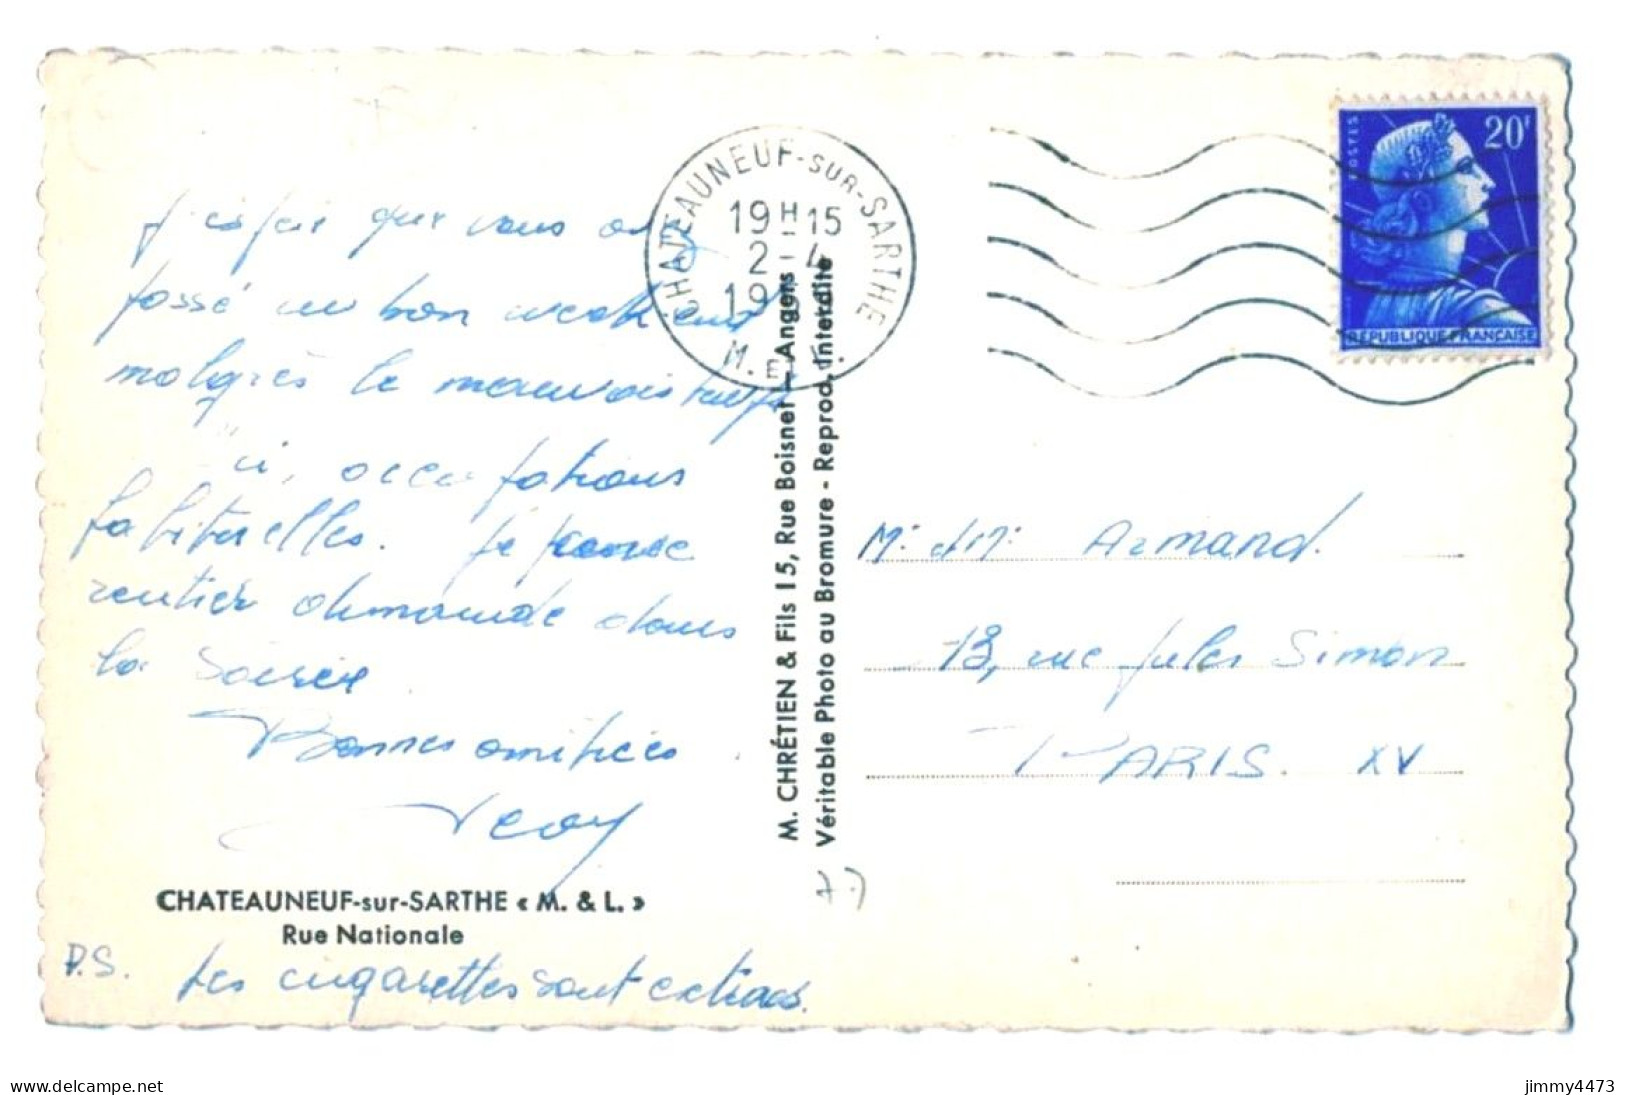 J'espère que vous avez
passé un bon week-end
malgrès le mauvais temps
ici, occupations
habituelles. Je pense
rentrer dimanche dans
la soirée.
Bonnes amitiées
P.S. Les cigarettes sont extras.
CHATEAUNEUF-sur-SARTHE « M. & L. »
Rue Nationale
M. CHRÉTIEN & Fils 15, Rue Boisnet - Angers
Véritable Photo au Bromure - Reprod. Interdite
CHATEAUNEUF-SUR-SARTHE
19H15
2-4
M. ET L.
POSTES
20F
REPUBLIQUE FRANÇAISE
Mr. et Me. Armand.
13, rue Jules Simon
PARIS. XV